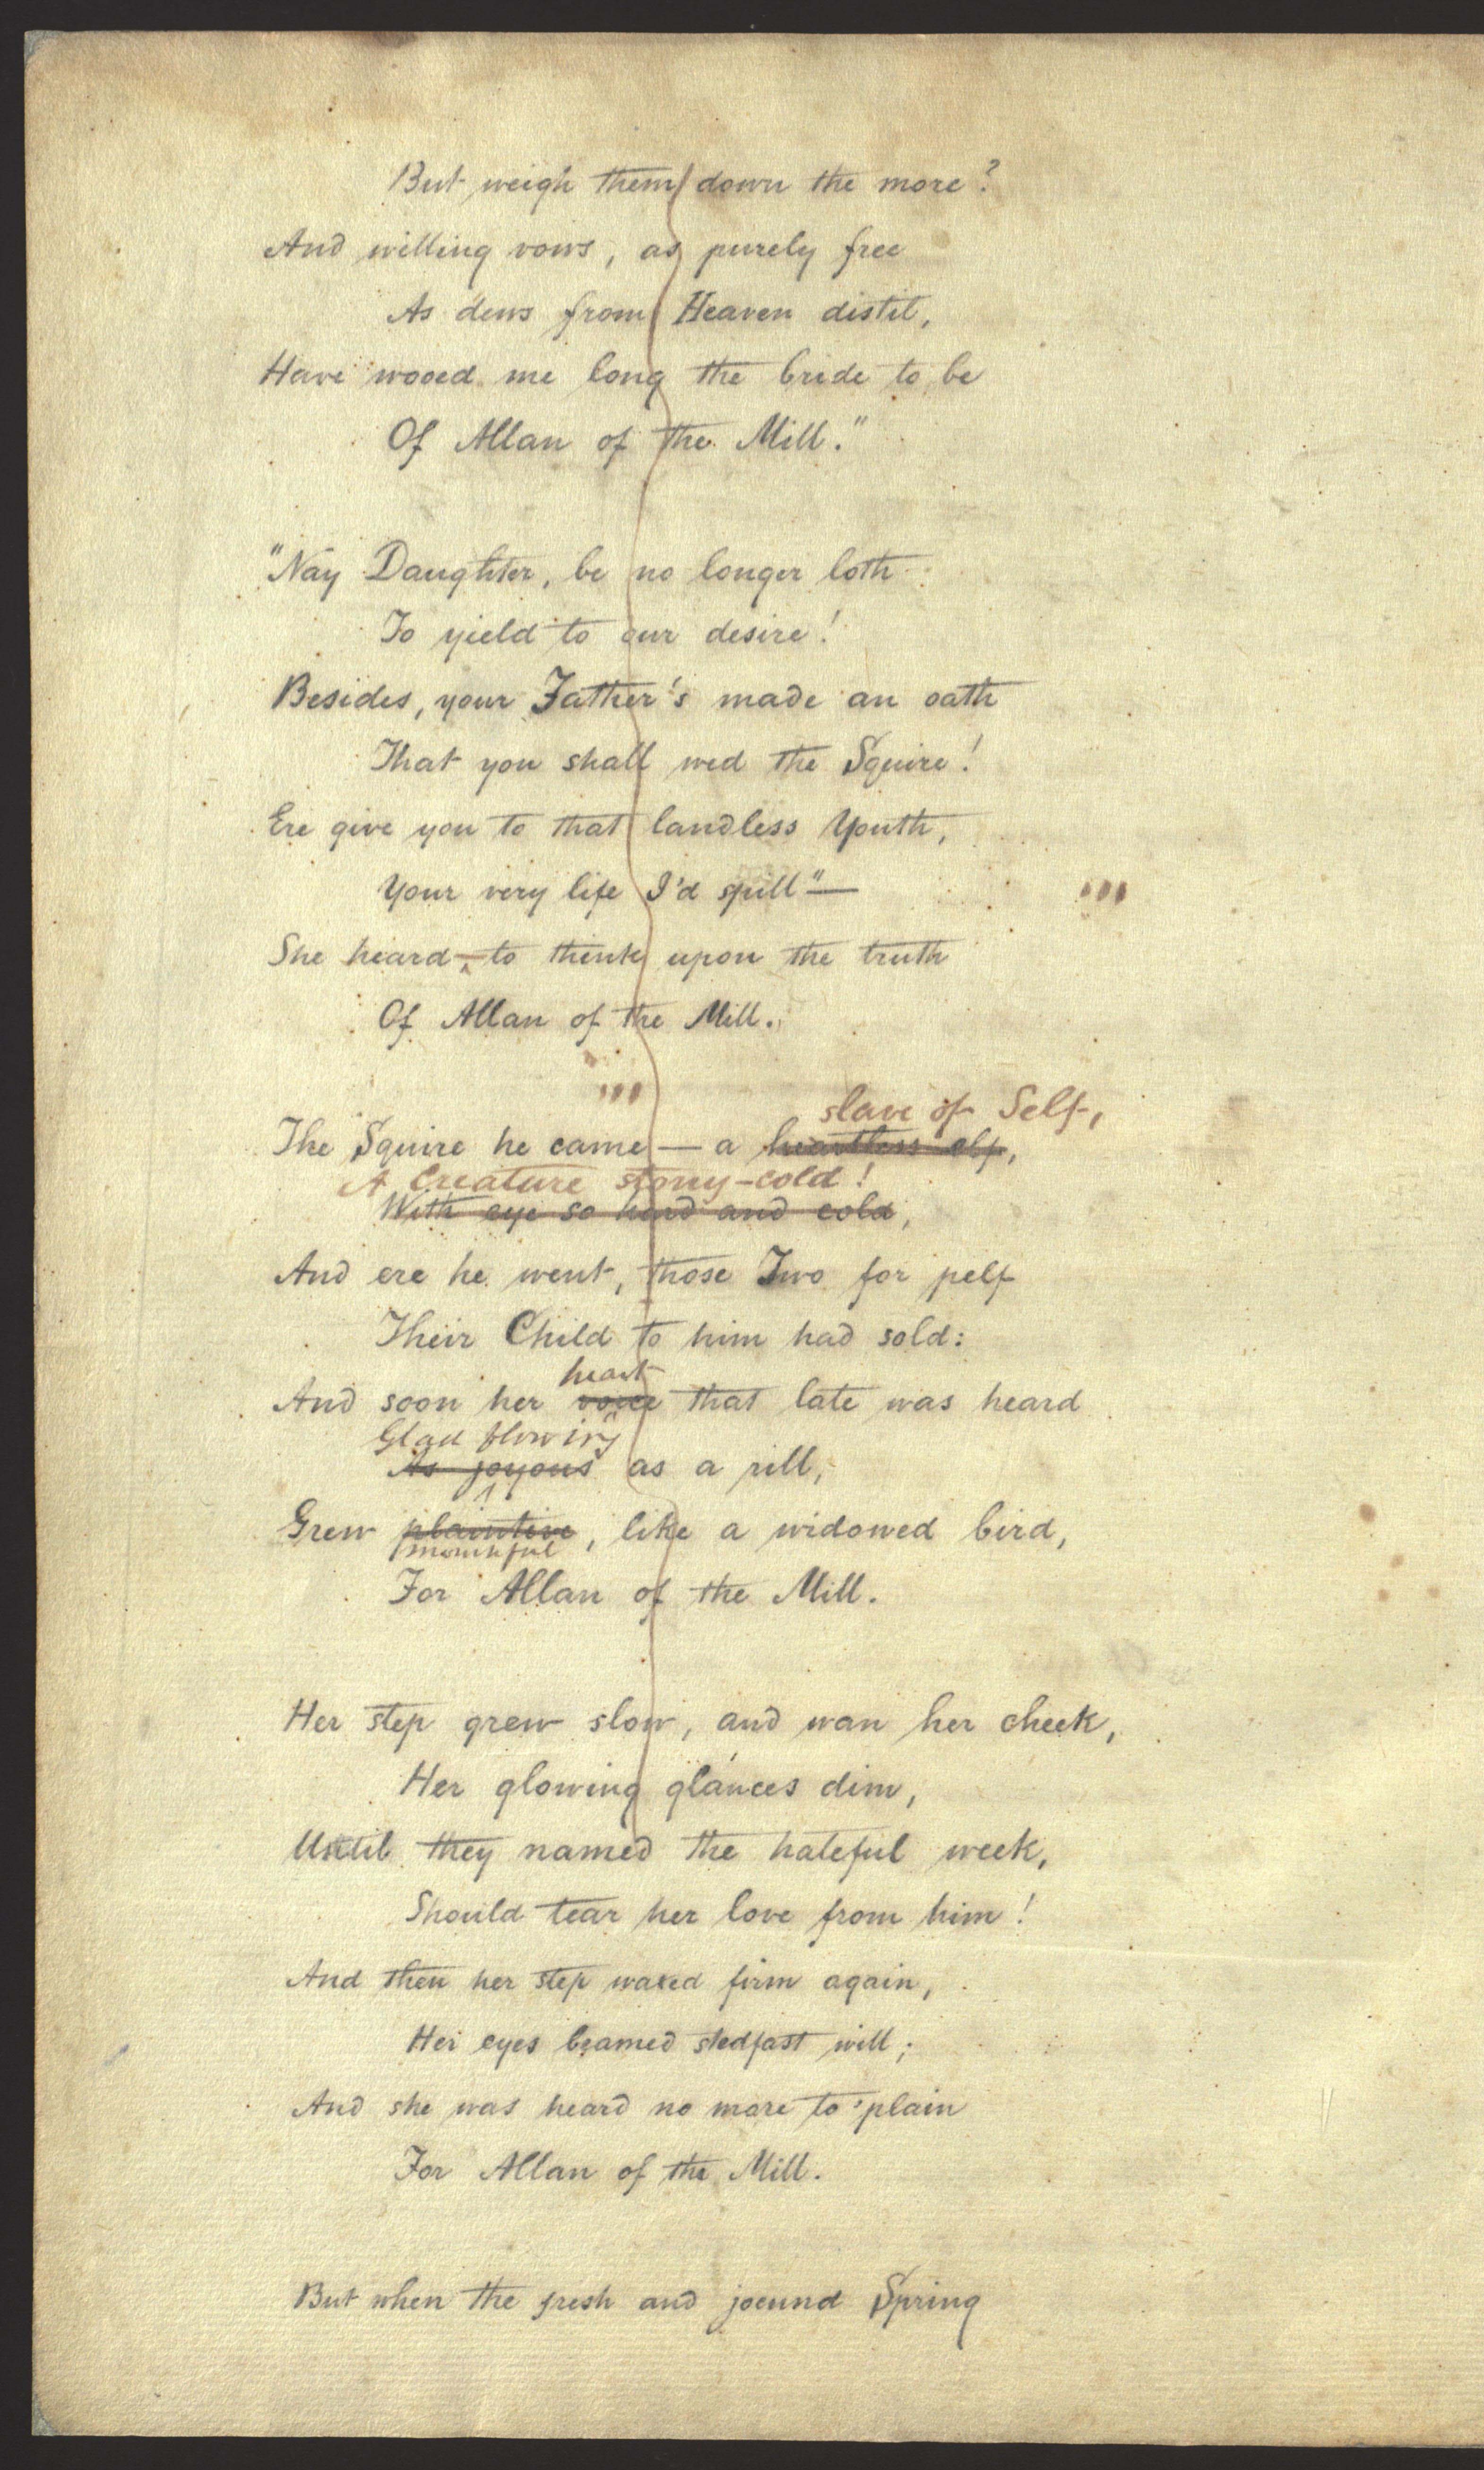 But weigh them down the more?
And willing vows, as purely free
As dews from Heaven distil,
Have wooed me long the bride to be
Of Allan of the Mill."
"Nay Daughter, be no longer loth
To yield to our desire!
Besides, your Father's made an oath
That you shall wed the Squire!
Ere give you to that landless Youth,
Your very life I'd spill"—
She heard,—to think upon the truth
Of Allan of the Mill.
slave of Self,
The Squire he came — a heartless elf,
A Creature stony-cold!
With eye so hard and cold,
And ere he went, those Two for pelf
Their Child to him had sold:
heart
And soon her voice that late was heard
Glad flowing
As joyous as a rill,
Grew plaintive, like a widowed bird,
mournful
For Allan of the Mill.
Her step grew slow, and wan her cheek,
Her glowing glánces dim,
Until they named the hateful week,
Should tear her love from him!
And then her step waxed firm again,
Her eyes beamed stedfast will;
And she was heard no more to 'plain
For Allan of the Mill.
But when the fresh and jocund Spring